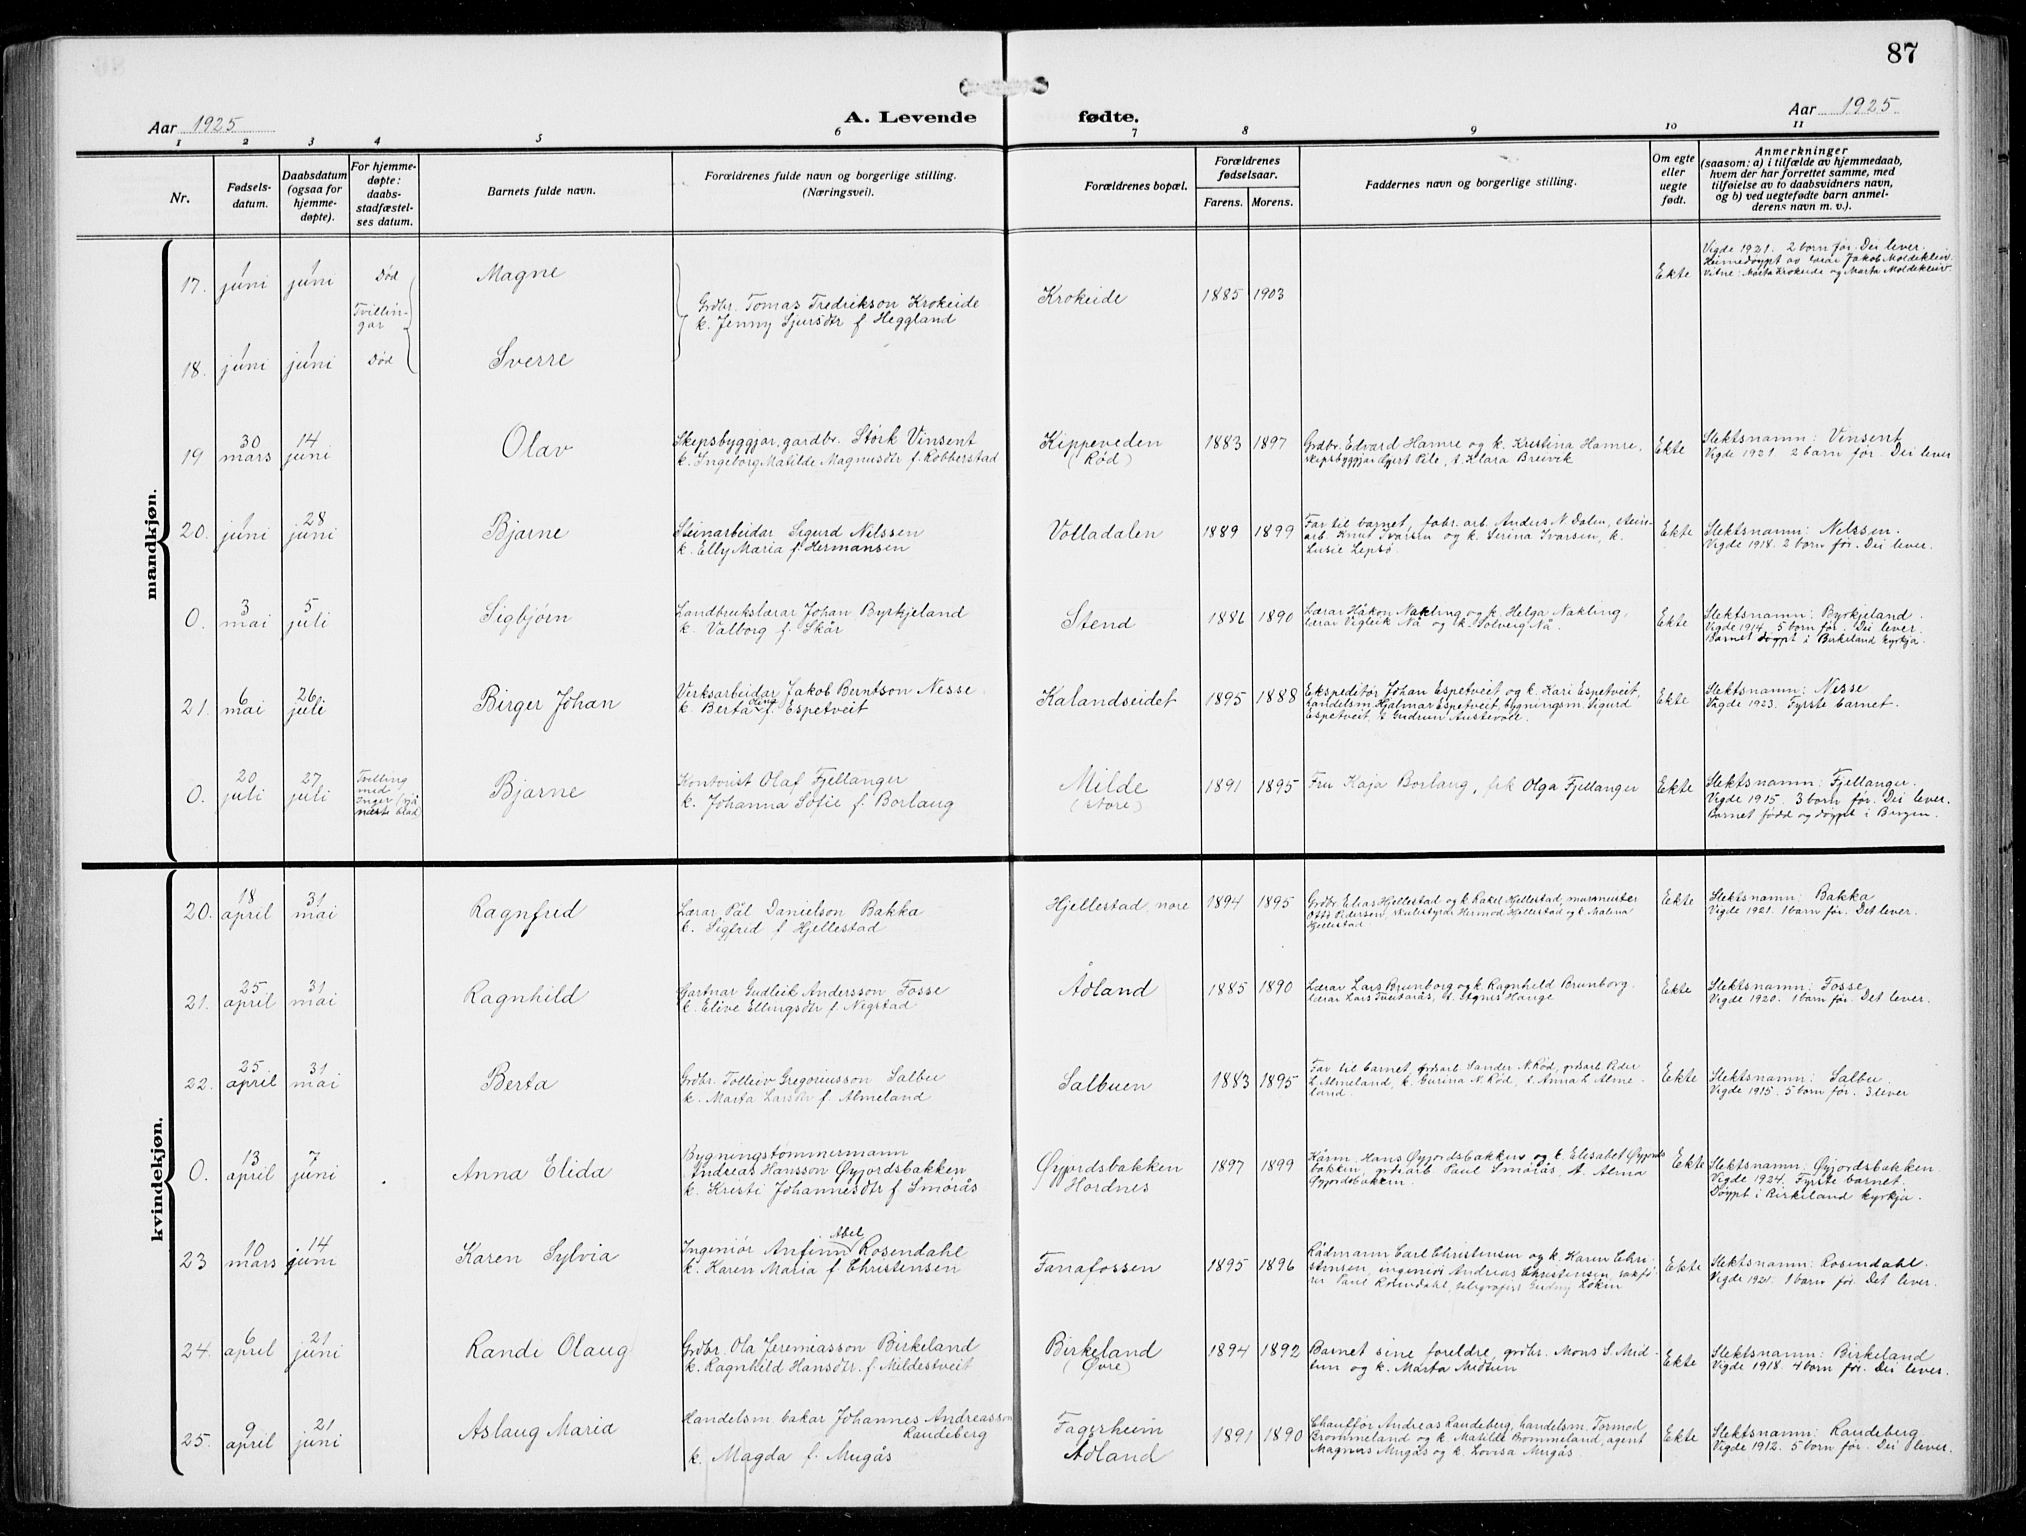 87
Aar 1925
A. Levende fødte.
Aar 1925
1 2 3 4 5 6 7 8 9 10 11
Nr.
Fødsels-
datum.
Daabsdatum
(ogsaa for
hjemme-
døpte).
For hjemme-
døpte:
daabs-
stadfæstel-
ses datum.
Barnets fulde navn.
Forældrenes fulde navn og borgerlige stilling.
(Næringsvei).
Forældrenes bopæl.
Forældrenes
fødselsaar.
Farens. Morens.
Faddernes navn og borgerlige stilling.
Om egte
eller
uegte
født.
Anmerkninger
(saasom: a) i tilfælde av hjemmedaab,
hvem der har forrettet samme, med
tilføielse av to daabsvidners navn,
og b) ved uegtefødte barn anmel-
derens navn m. v.).
mandkjøn.
17. 1 juni 1 juni Død Magne
Tvillin-
gar
Grdbr. Tomas Fredrikson Krokeide
k. Jenny Sjursdtr f. Heggland
Krokeide 1885 1903 Ekte
Vigde 1921. 2 born før. Dei lever.
Heimedøypt av lærar Jakob Moldekleiv.
Vitne: Marta Krokeide og Marta Moldekleiv.
18. 1 juni 1 juni Død Sverre
19 30 mars 14 juni Olav
Skipsbyggjar, gardbr. Størk Vinsent
k. Ingeborg Matilde Magnusdtr f. Robberstad
Kippeveden
(Rød)
1883 1897
Grdbr. Edvard Hamre og k. Kristina Hamre,
skipsbyggjar Gjert Pile, t. Klara Breivik
Ekte
Slektsnamn: Vinsent
Vigde 1921. 2 barn før. Dei lever
20. 1 juni 28 juni Bjarne
Steinarbeidar Sigurd Nilssen
k. Elly Maria f. Hermansen
Volladalen 1889 1899
Far til barnet, fabr. arb. Anders N. Dalen, stein-
arb. Knut Ivarsen og k. Serina Ivarsen, k.
Lusie Lepsø.
Ekte
Slektsnamn: Nilssen.
Vigde 1918. 2 born før. Dei lever.
0. 3 mai 5 juli Sigbjørn
Landbrukslærar Johan Byrkjeland
k. Valborg f. Skår
Stend 1886 1890
Lærar Håkon Nakling og k. Helga Nakling,
lærar Vigleik Nå og k. Solveig Nå.
Ekte
Slektsnamn: Byrkjeland.
Vigde 1914. 5 born før. Dei lever.
Barnet døypt i Birkeland kyrkja.
21. 6 mai 26 juli Birger Johan
Verksarbeidar Jakob Berntson Nesse.
k. Berta Olina f. Espetveit
Kalandseidet 1895 1888
Ekspeditør Johan Espetveit og k. Kari Espetveit,
handelsm. Hjalmar Espetveit, bygningsm. Sigurd
Espetveit, t. Gudrun Austevoll.
Ekte
Slektsnamn: Nesse
Vigde 1923. Fyrste barnet.
0. 20 juli 27 juli
Tvilling
med
Inger (sjå
næste blad)
Bjarne
Kontorist Olaf Fjellanger
k. Johanna Sofie f. Borlaug
Milde
(store)
1891 1895
Fru Kaja Borlaug, frk Olga Fjellanger
Ekte
Slektsnamn: Fjellanger.
Vigde 1915. 3 born før. Dei lever.
Barnet fødd og døypt i Bergen.
kvindekjøn.
20. 18 april 31 mai Ragnfrid
Lærar Pål Danielson Bakka
k. Sigfrid f. Hjellestad
Hjellestad nore 1894 1895
Grdbr. Elias Hjellestad og k Rakel Hjellestad, murmeister
Otto Pedersen, skulestyrar Hermod Hjellestad og k. Malena
Hjellestad
Ekte
Slektsnamn: Bakka
Vigde 1921. 1 barn før. Det lever.
21. 25 april 31 mai Ragnhild
Gartnar Gudleik Andersson Fosse
k. Elive Ellingsdtr f. Negstad
Ådland 1885 1890
Lærar Lars Brunborg og k Ragnhild Brunborg.
lærar Lars Tveiterås, t. Agnes Hauge
Ekte
Slektsnamn: Fosse
Vigde 1920. 1 barn før. Det lever.
22. 25. april 31 mai Berta
Grdbr. Tolleiv Gregoriusson Salbu
k. Marta Larsdtr f. Almeland
Salbuen 1883 1895
Far til barnet, grdsarb Sander N. Rød, grdsarb. Peder
L. Almeland, k. Gurina N. Rød, t. Anna L. Alme
land.
Ekte
Slektsnamn: Salbu.
Vigde 1915. 5 born før. 3 lever
0. 13 april 7 juni Anna Elida
Bygningstømmermann
Andreas Hansson Øyjordsbakken
k. Kristi Johannesdtr f. Smørås
Øyjordsbakken
Hordnes
1897 1899
Kårm. Hans Øyjordsbakken og k. Elisabet Øyjords
bakken, grdsarb Paul Smørås, t. Alma
Øyjordsbakken.
Ekte
Slektsnamn: Øyjordsbakken.
Vigde 1924. Fyrste barnet.
Døypt i Birkeland kyrkja.
23 10 mars 14 juni Karen Sylvia
Ingeniør Anfinn Abel Rosendahl
k. Karen Maria f. Christensen
Fanafossen 1895 1896
Rådmann Carl Christensen og k. Karen Chri-
stensen, ingeniør Andreas Christensen, sakfø-
rer Paul Rosendahl, telegrafist Gudny Løken
Ekte
Slektsnamn: Rosendahl.
Vigde 1921. 1 barn før. Det lever.
24. 6 april 21 juni Randi Olaug
Grdbr. Ola Jeremiasson Birkeland
k. Ragnhild Hansdtr. f. Mildestveit
Birkeland
(Øvre)
1894 1892
Barnet sine foreldre, grdbr. Mons S. Mid-
tun og k. Marta Midtun
Ekte
Slektsnamn: Birkeland
Vigde 1918. 4 born før. Dei lever.
25. 9 april 21 juni Aslaug Maria
Handelsm bakar Johannes Andreasson
Raudeberg
k. Magda f. Mugås
Fagerheim
Ådland
1891 1890
Chauffør Andreas Raudeberg, handelsm. Tormod
Brommeland og k. Matilde Brommeland, agent
Magnus Mugås og k. Lovisa Mugås.
Ekte
Slektsnamn: Raudeberg
Vigde 1912. 5 born før. Dei lever.